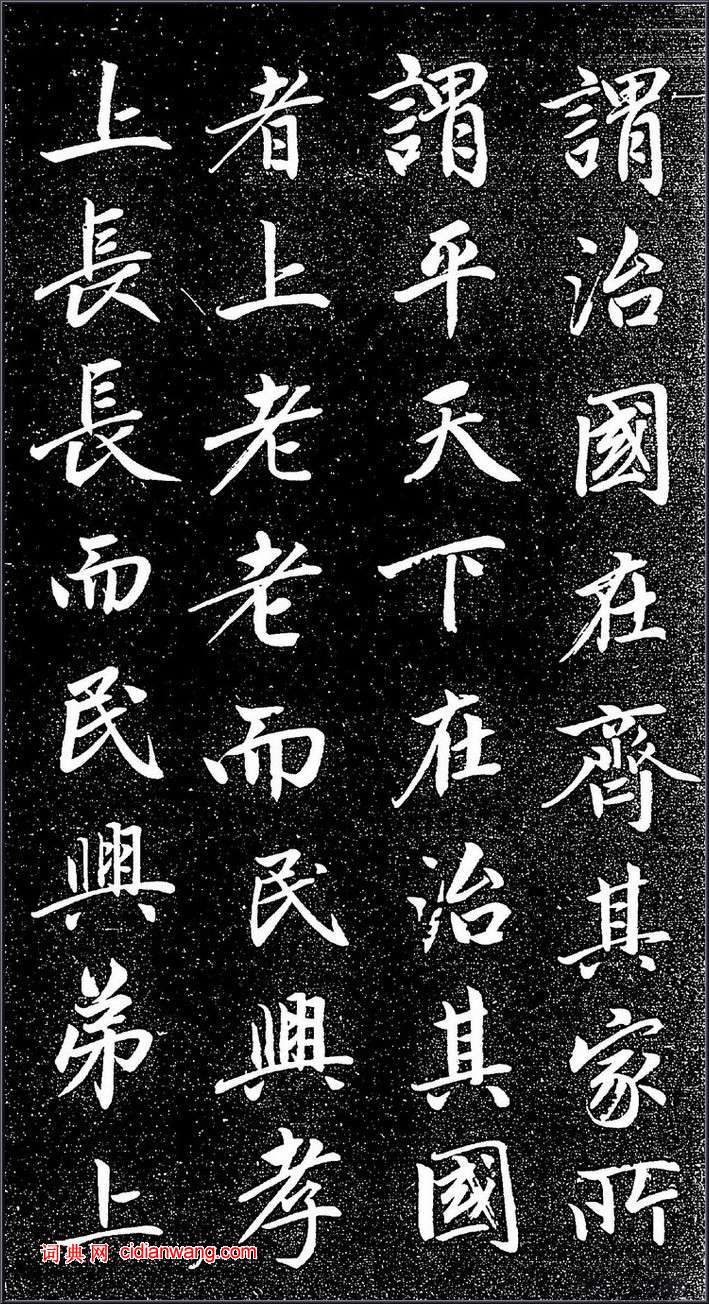 謂治國在齊其家所
謂平天下在治其國
者上老老而民興孝
上長長而民興弟上
词典网 cidianwang.com